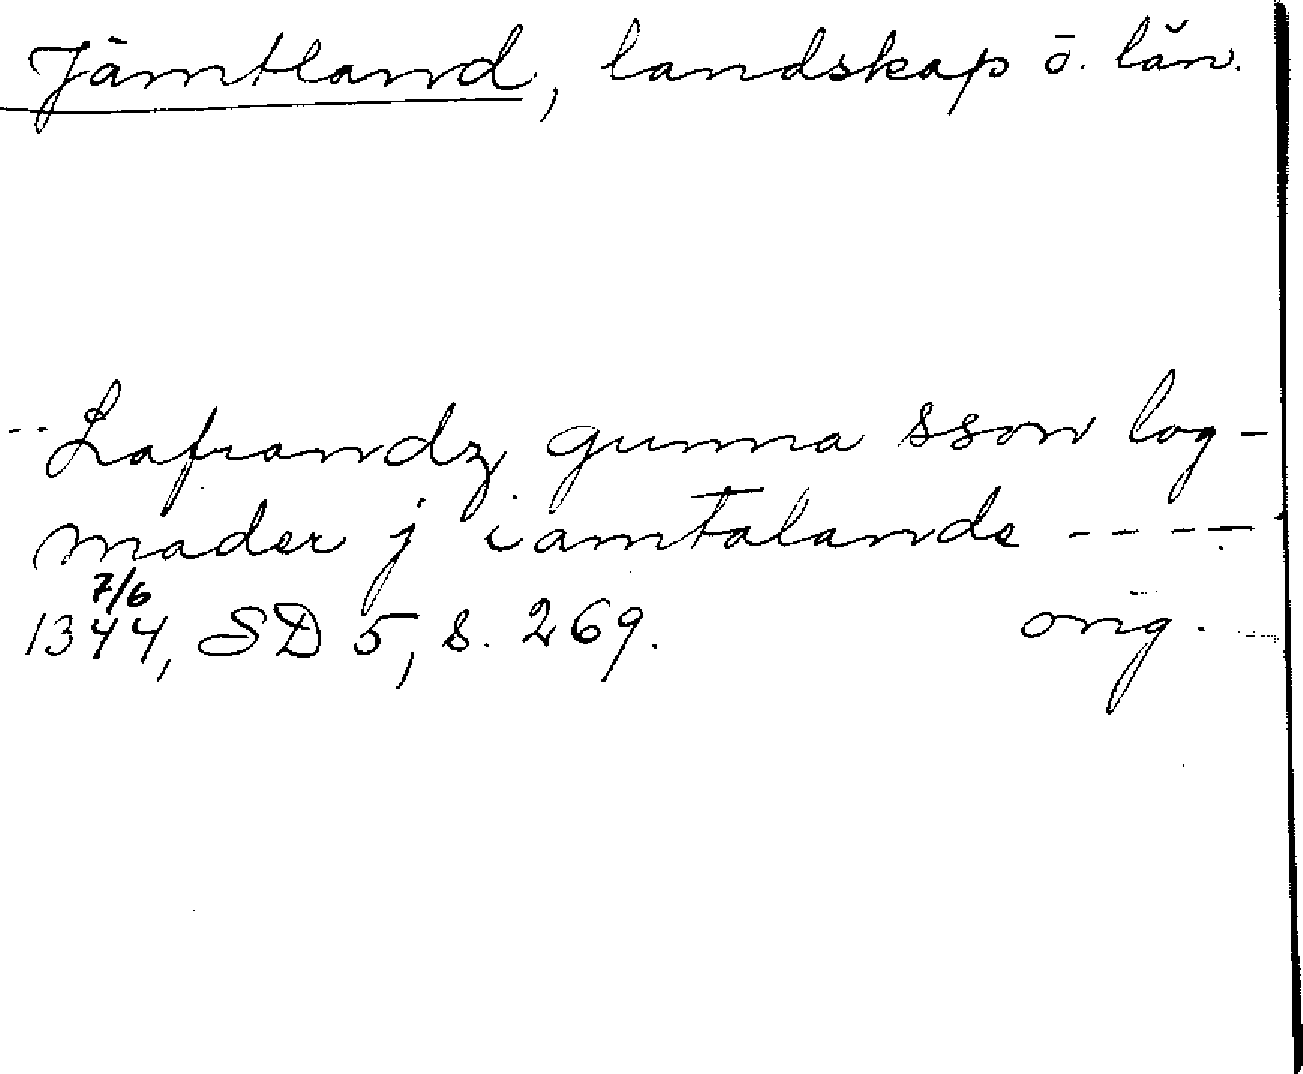 Jämtland, landskap o. län.
-- Lafrandz gunna sson log-
mader j iamtalande ----
1344 7/6, SD 5, s. 269. orig.